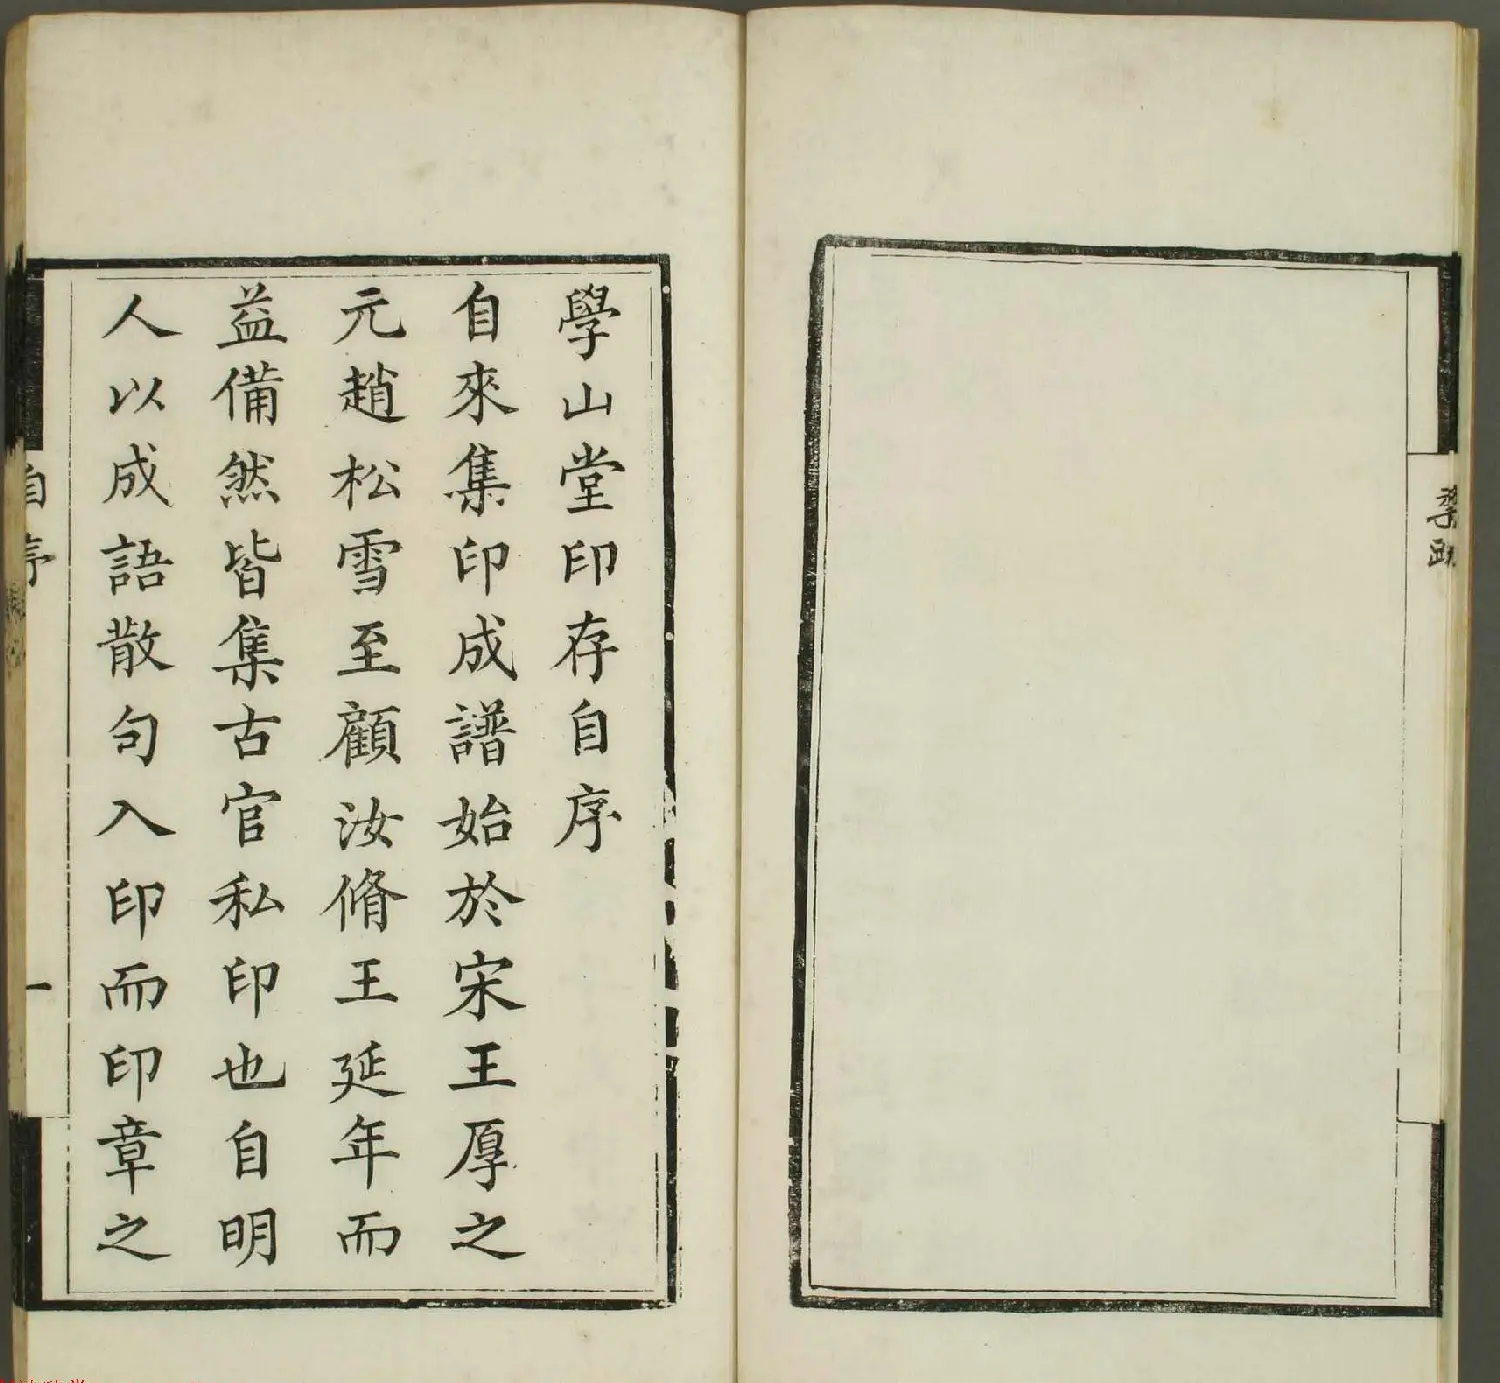 學山堂印存自序
自來集印成譜始於宋王厚之
元趙松雪至顧汝脩王延年而
益備然皆集古官私印也自明
人以成語散句入印而印章之
自序
一